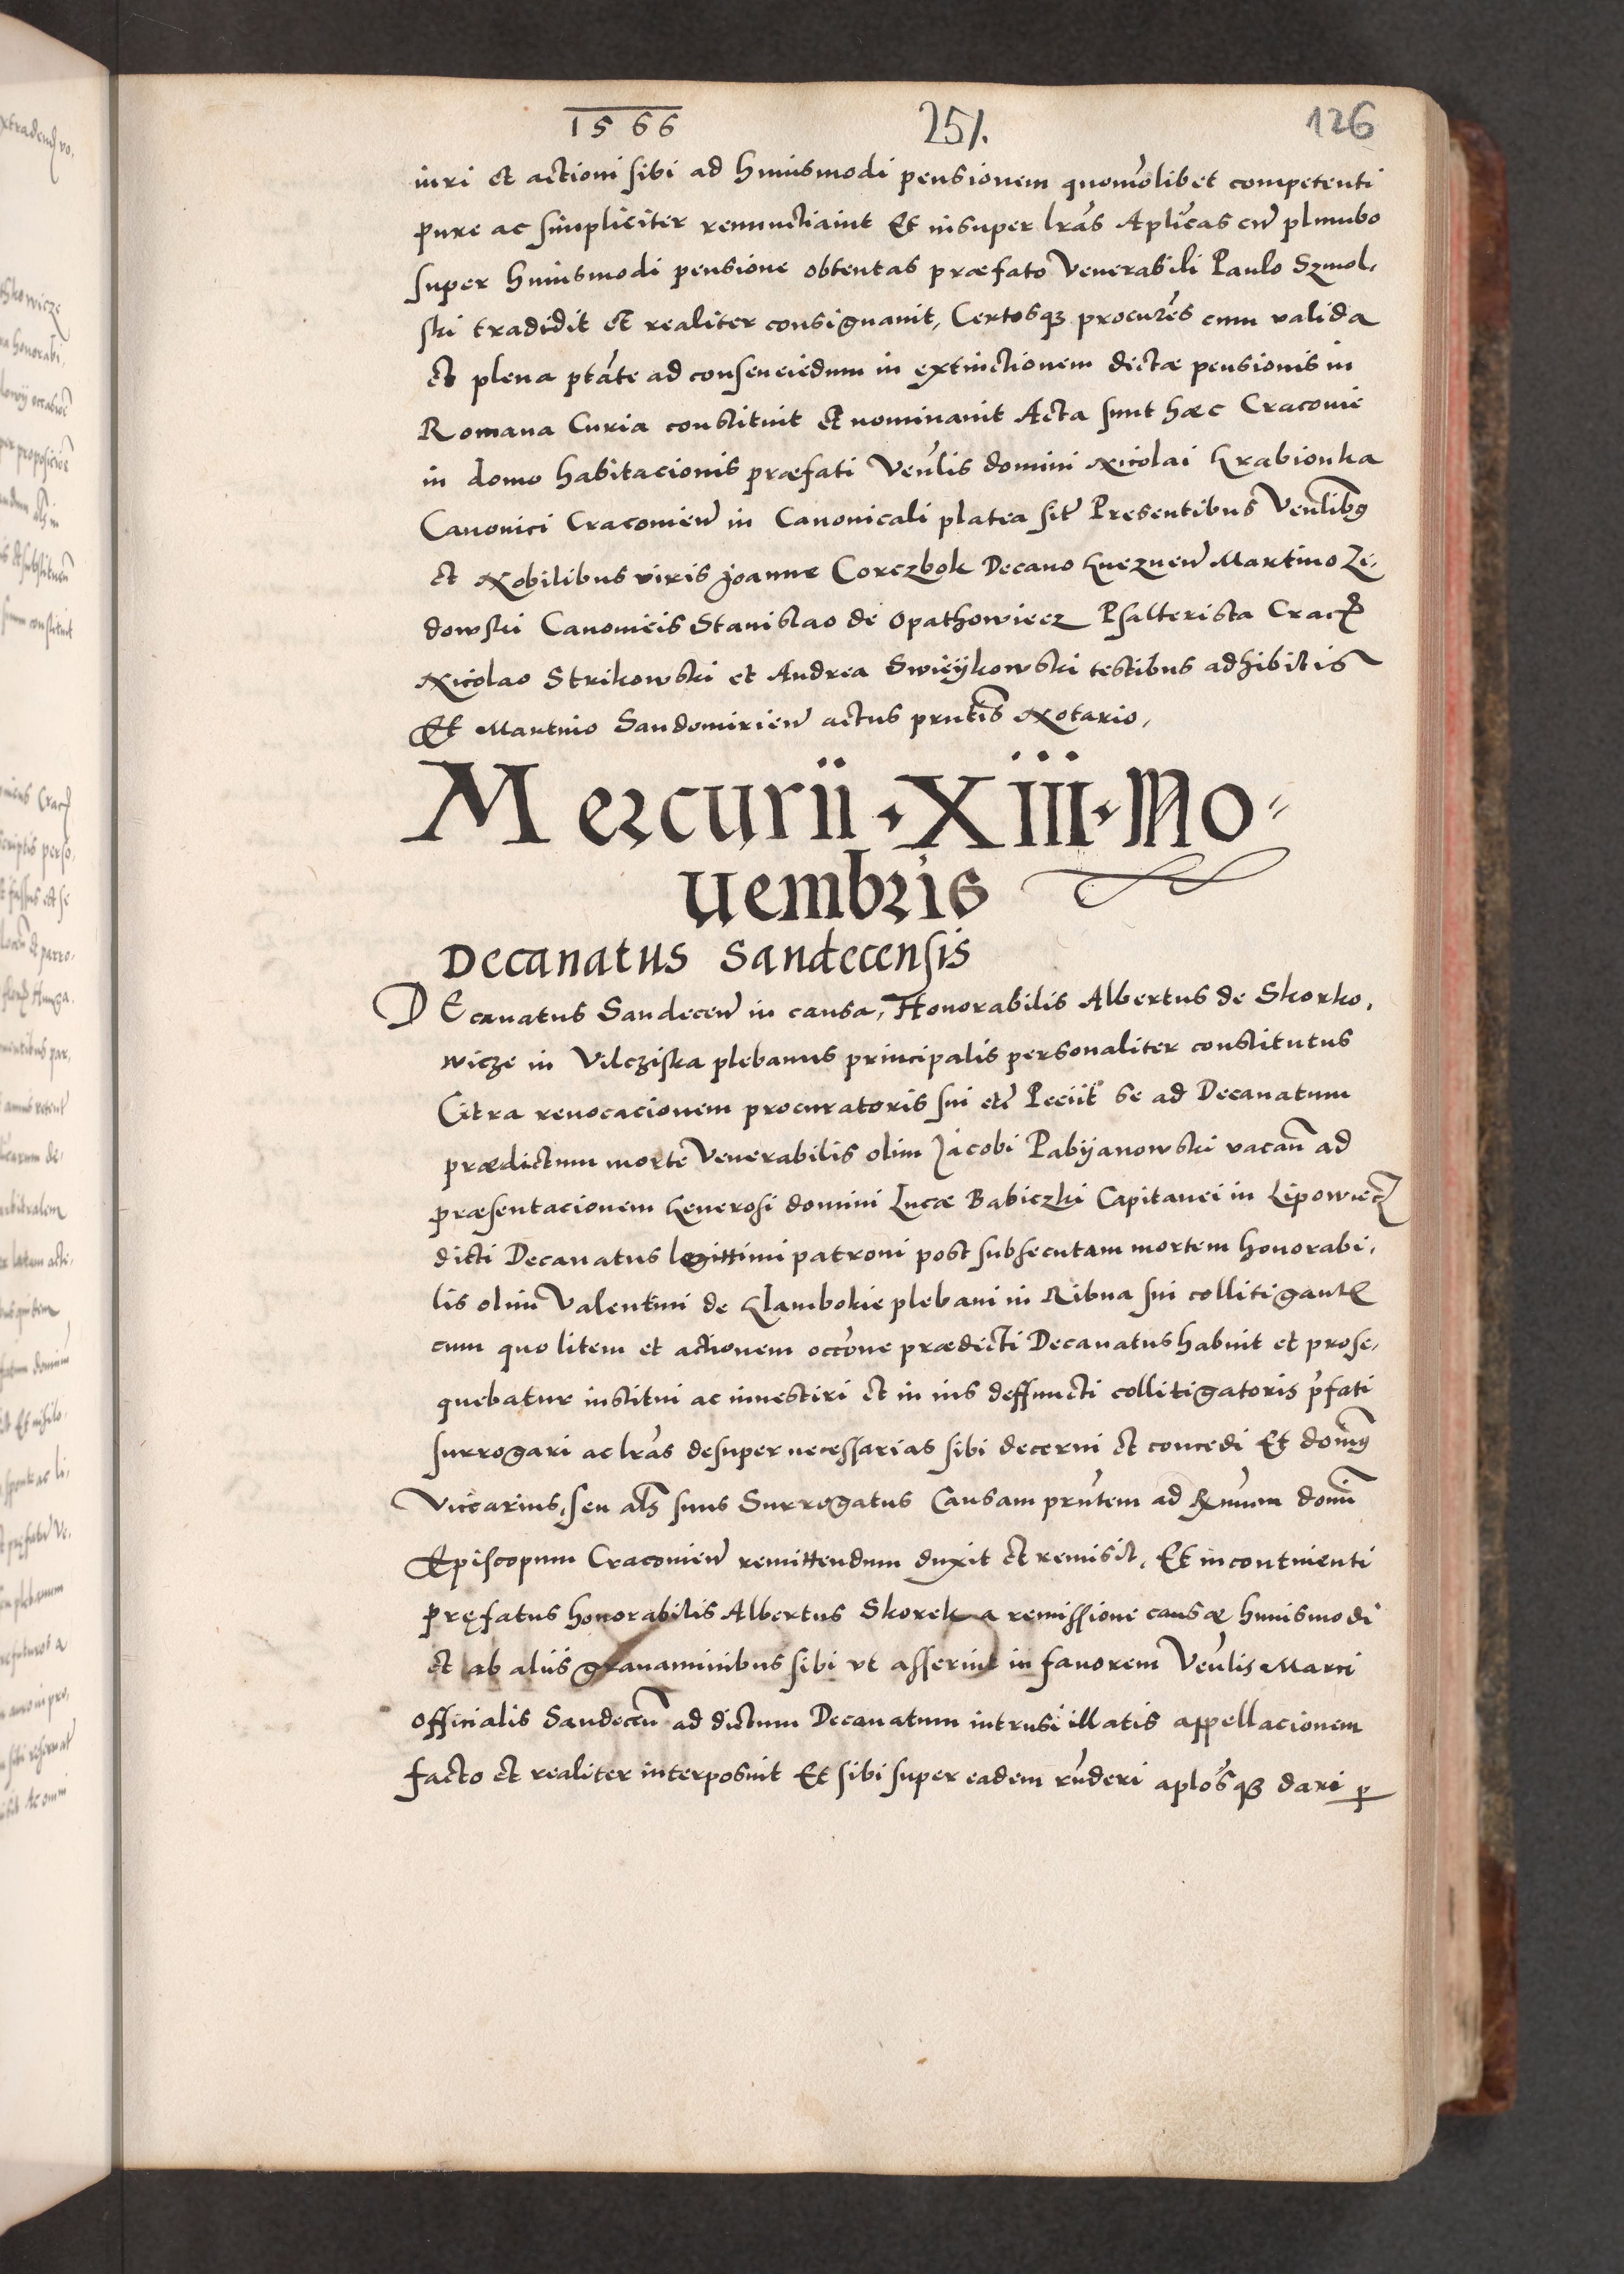 1566 251. 126
iuri et actioni sibi ad huiusmodi pensionem quomōlibet competenti
pure ac simpliciter renunctiauit Et insuper lrās Aplicas cū plumbo
super huiusmodi pensione obtentas præfato Venerabili Paulo Szmol,
ski tradidit et realiter consignauit, Certosqȝ procurēs cum valida
et plena ptāte ad consenciēdum in extinctionem dictæ pensionis in
Romana Curia constituit et nominauit Acta sunt hæc Cracouie
in domo habitacionis præfati Veñlis domini Nicolai Grabionka
Canonici Cracouieñ in Canonicali platea sit̃ Presentibus Veñlibꝯ
et Nobilibus viris Joanne Corczbok Decano Gnezneñ Martino Ze,
dowski Canonicis Stanislao de Opathowiecz Psalterista Cracꝭ
Nicolao Strikowski et Andrea Swieÿkowski testibus adhibitis
Et Martino Sandomirieñ actus pñtis Notario,
Mercurii · XIII · No=
uembris
Decanatus Sandecensis
DEcanatus Sandeceñ in causa, Honorabilis Albertus de Skorko,
wicze in Vilcziska plebanus principalis personaliter constitutus
Citra reuocacionem procuratoris sui etc̃ Peciit se ad Decanatum
prædictum morte Venerabilis olim Jacobi Pabÿanowski vacañ ad
præsentacionem Generosi domini Lucæ Babiczki Capitanei in Lipowiecz
dicti Decanatus legittimi patroni post subsecutam mortem honorabi,
lis olim Valentini de Glambokie plebani in Ribna sui collitigantꝭ
cum quo litem et actionem occōne prædicti Decanatus habuit et prose,
quebatur institui ac inuestiri et in ius deffuncti collitigatoris p̃fati
surrogari ac lrās desuper necessarias sibi decerni et concedi Et domiñꝯ
Viccarius, seu als̃ suus Surrogatus Causam pñtem ad Rm̃um domiñ
Episcopum Cracouieñ remittendum duxit et remisit, Et incontinenti
pręfatus honorabilis Albertus Skorek a remissione causæ huiusmodi
et ab aliis grauaminibus sibi vt asseruit in fauorem Veñlis Marci
officialis Sandeceñ ad dictum Decanatum intrusi illatis appellacionem
facto et realiter interposuit Et sibi super eadem rñderi aplōsqȝ dari ꝑ